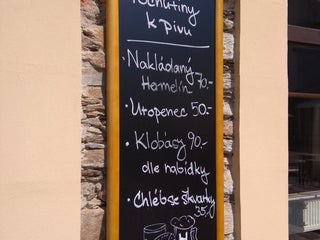 Pochutiny
k pivu
• Nakládaný
Hermelín 70.-
• Utopenec 50.-
• Klobásy 90.-
dle nabídky
• Chléb se škvarky
35,-